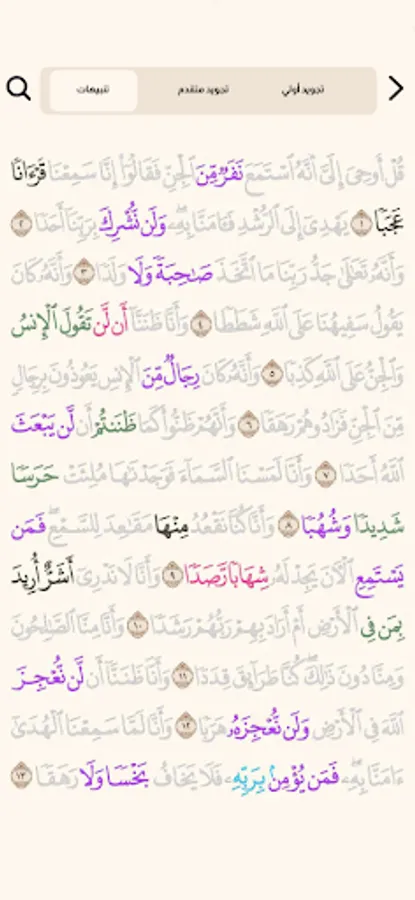 تجويد أولي تجويد متقدم تنبيهات
قُلْ أُوحِىَ إِلَىَّ أَنَّهُ ٱسْتَمَعَ نَفَرٌ مِّنَ ٱلْجِنِّ فَقَالُوٓا۟ إِنَّا سَمِعْنَا قُرْءَانًا
عَجَبًا ١ يَهْدِىٓ إِلَى ٱلرُّشْدِ فَـَٔامَنَّا بِهِۦ وَلَن نُّشْرِكَ بِرَبِّنَآ أَحَدًا ٢
وَأَنَّهُۥ تَعَـٰلَىٰ جَدُّ رَبِّنَا مَا ٱتَّخَذَ صَـٰحِبَةً وَلَا وَلَدًا ٣ وَأَنَّهُۥ كَانَ
يَقُولُ سَفِيهُنَا عَلَى ٱللَّهِ شَطَطًا ٤ وَأَنَّا ظَنَنَّآ أَن لَّن تَقُولَ ٱلْإِنسُ
وَٱلْجِنُّ عَلَى ٱللَّهِ كَذِبًا ٥ وَأَنَّهُۥ كَانَ رِجَالٌ مِّنَ ٱلْإِنسِ يَعُوذُونَ بِرِجَالٍ
مِّنَ ٱلْجِنِّ فَزَادُوهُمْ رَهَقًا ٦ وَأَنَّهُمْ ظَنُّوا۟ كَمَا ظَنَنتُمْ أَن لَّن يَبْعَثَ
ٱللَّهُ أَحَدًا ٧ وَأَنَّا لَمَسْنَا ٱلسَّمَآءَ فَوَجَدْنَـٰهَا مُلِئَتْ حَرَسًا
شَدِيدًا وَشُهُبًا ٨ وَأَنَّا كُنَّا نَقْعُدُ مِنْهَا مَقَـٰعِدَ لِلسَّمْعِ ۖ فَمَن
يَسْتَمِعِ ٱلْـَٔانَ يَجِدْ لَهُۥ شِهَابًا رَّصَدًا ٩ وَأَنَّا لَا نَدْرِىٓ أَشَرٌّ أُرِيدَ
بِمَن فِى ٱلْأَرْضِ أَمْ أَرَادَ بِهِمْ رَبُّهُمْ رَشَدًا ١٠ وَأَنَّا مِنَّا ٱلصَّـٰلِحُونَ
وَمِنَّا دُونَ ذَٰلِكَ ۖ كُنَّا طَرَآئِقَ قِدَدًا ١١ وَأَنَّا ظَنَنَّآ أَن لَّن نُّعْجِزَ
ٱللَّهَ فِى ٱلْأَرْضِ وَلَن نُّعْجِزَهُۥ هَرَبًا ١٢ وَأَنَّا لَمَّا سَمِعْنَا ٱلْهُدَىٰٓ
ءَامَنَّا بِهِۦ ۖ فَمَن يُؤْمِنۢ بِرَبِّهِۦ فَلَا يَخَافُ بَخْسًا وَلَا رَهَقًا ١٣